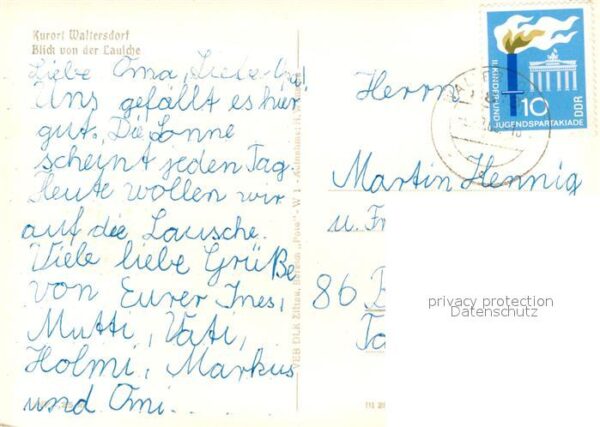 Kurort Waltersdorf
Blick von der Lausche
Liebe Oma, Liebe
Uns gefällt es hier
gut. Die Sonne
scheint jeden Tag.
Heute wollen wir
auf die Lausche.
Viele liebe Grüße
von Eurer Ines,
Mutti, Vati,
Holmi, Markus
und Omi...
VEB DLK Zittau,
II. KINDER- UND
JUGENDSPARTAKIADE
10
DDR
Herrn
Martin Hennig
u. Fr
86 B
Ta
privacy protection
Datenschutz